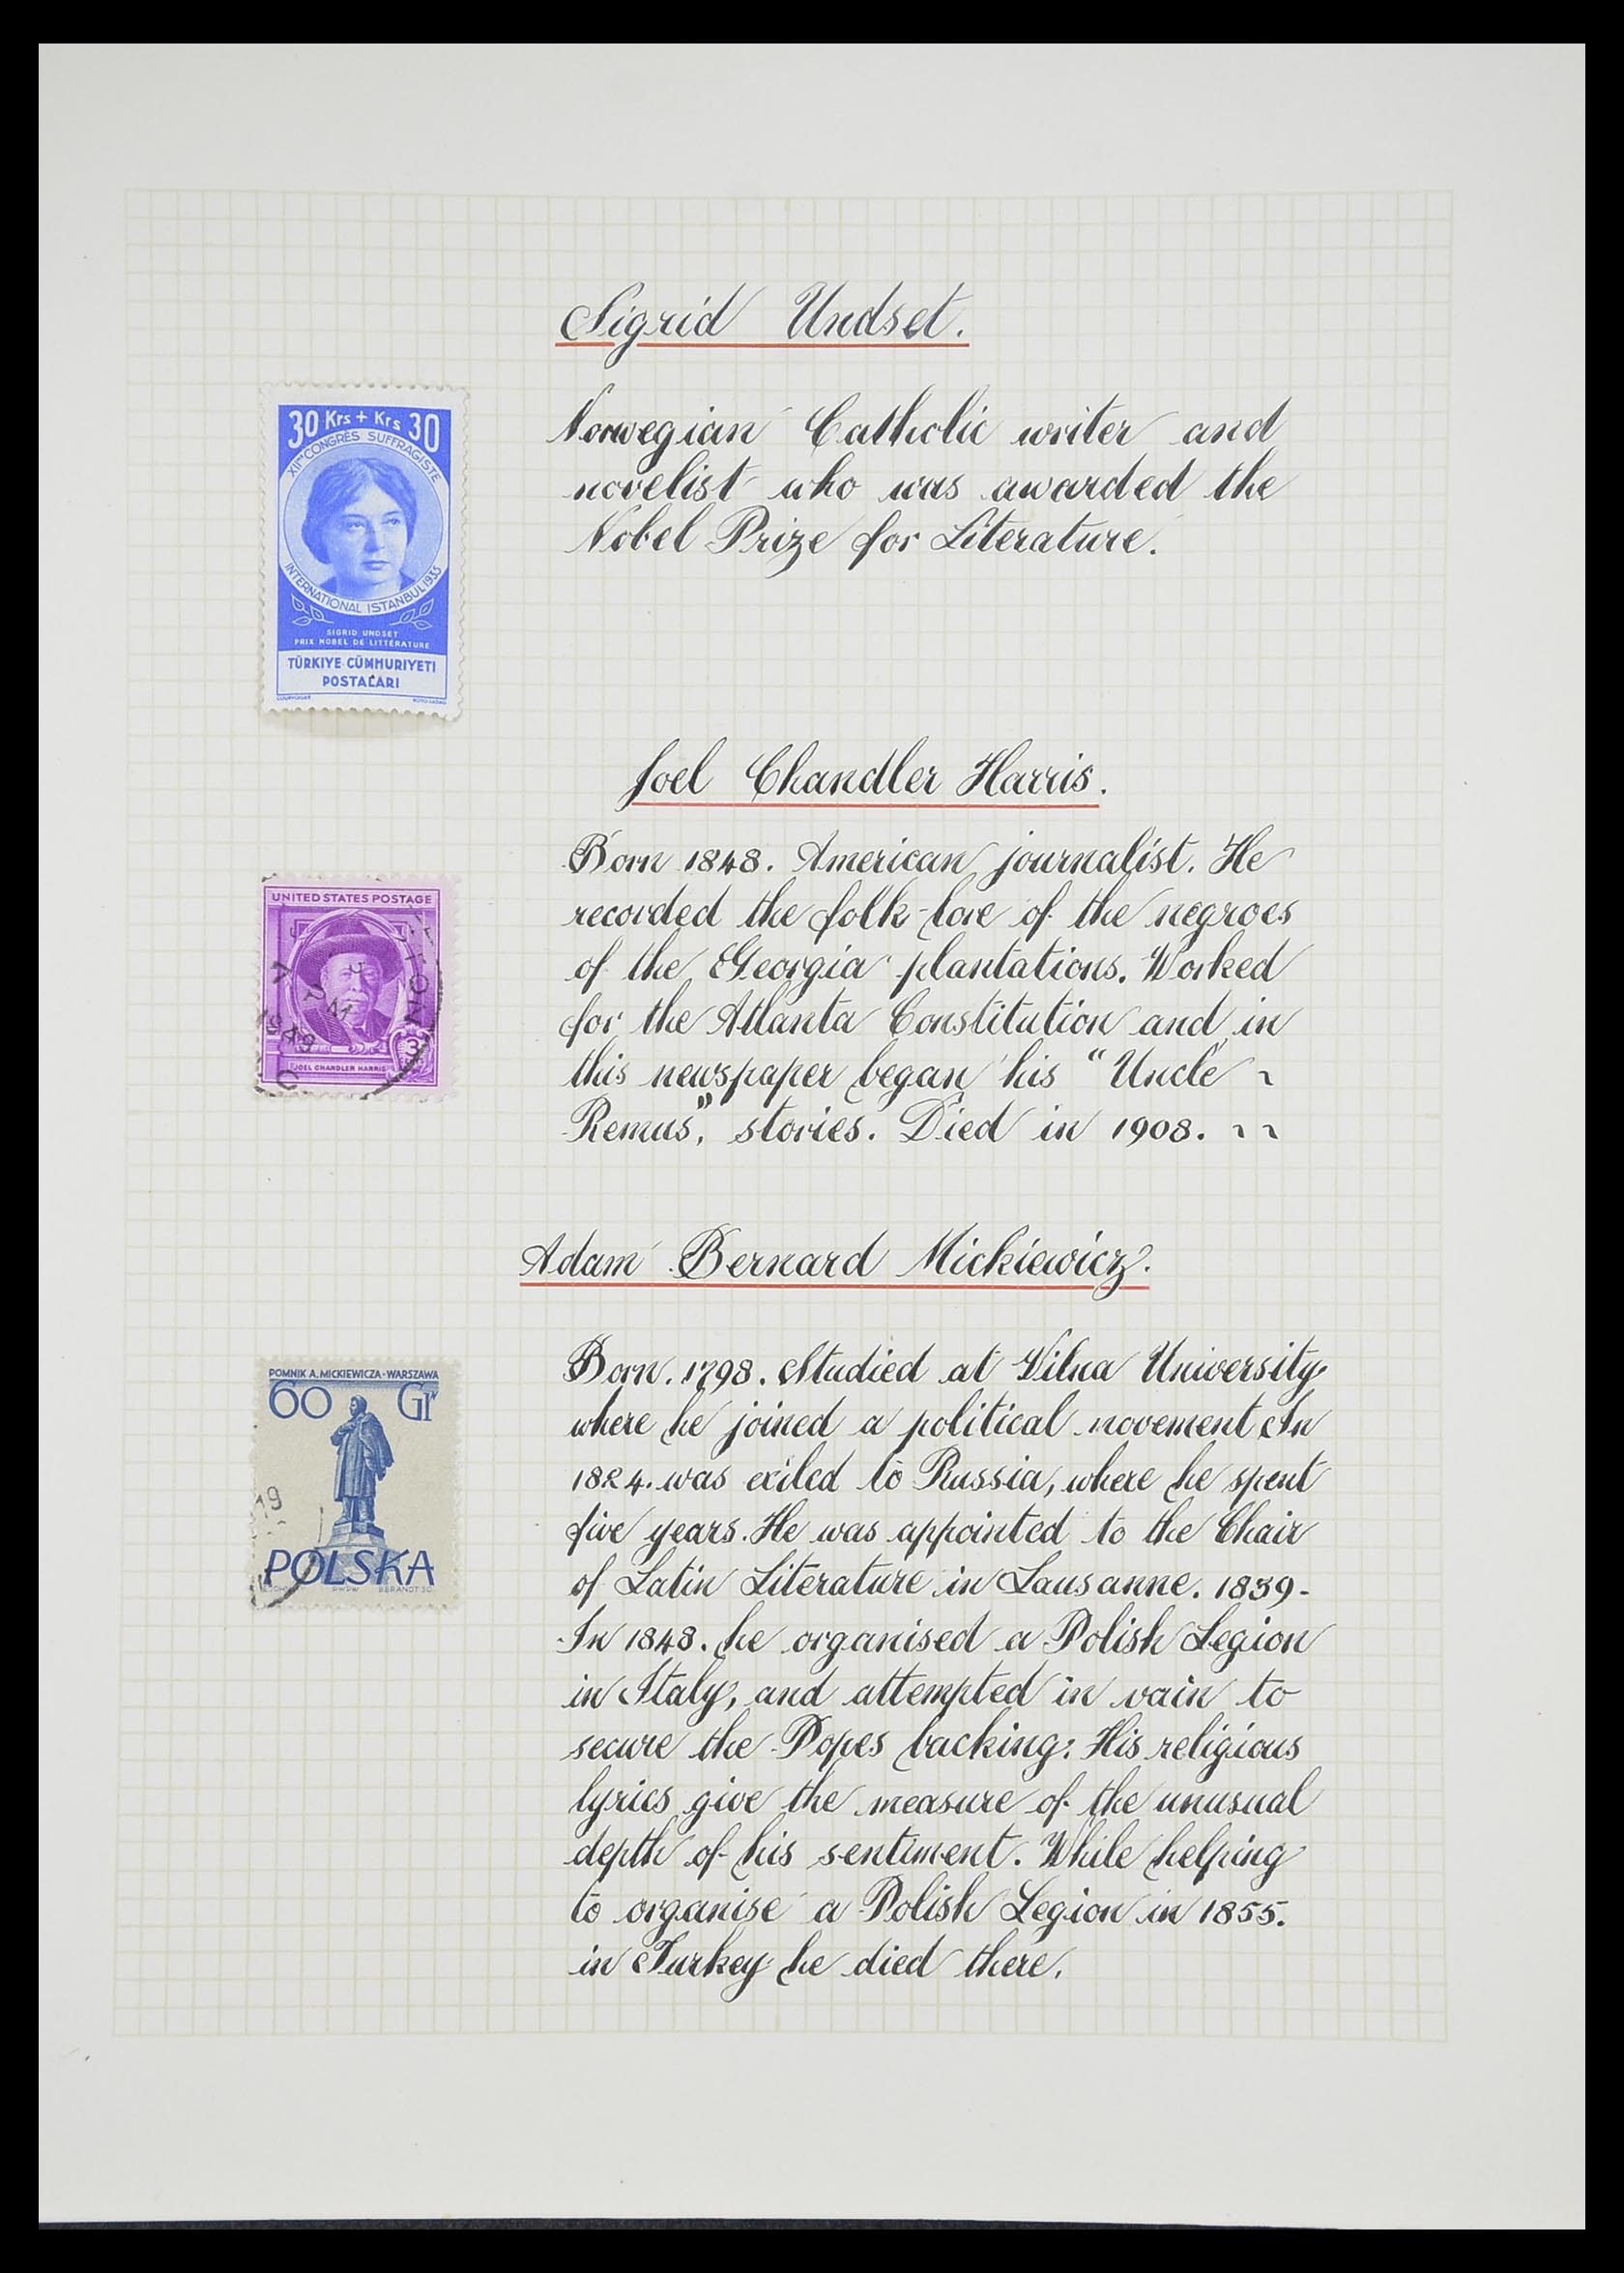 Sigrid Undset.
30 Krs + Krs 30
XIIme CONGRÈS SUFFRAGISTE
INTERNATIONAL ISTANBUL 1935
SIGRID UNDSET
PRIX NOBEL DE LITTÉRATURE
TÜRKIYE CÜMHURIYETI
POSTALARI
COURVOISIER
Norwegian Catholic writer and
novelist who was awarded the
Nobel Prize for Literature.
Joel Chandler Harris.
UNITED STATES POSTAGE
3
JOEL CHANDLER HARRIS
PM
1949
Born 1848. American journalist. He
recorded the folk-lore of the negroes
of the Georgia plantations. Worked
for the Atlanta Constitution and in
this newspaper began his "Uncle ~
Remus", stories. Died in 1908. ~ ~
Adam Bernard Mickiewicz.
POMNIK A. MICKIEWICZA - WARSZAWA
60 Gr
19
POLSKA
Born. 1798. Studied at Vilna University
where he joined a political movement In
1824. was exiled to Russia, where he spent
five years. He was appointed to the Chair
of Latin Literature in Lausanne. 1839-
In 1848. he organised a Polish Legion
in Italy, and attempted in vain to
secure the Popes backing: His religious
lyrics give the measure of the unusual
depth of his sentiment. While helping
to organise a Polish Legion in 1855.
in Turkey he died there.